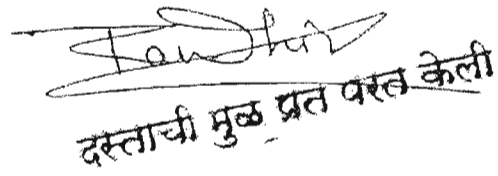 दस्ताची मुळ प्रत परत केली